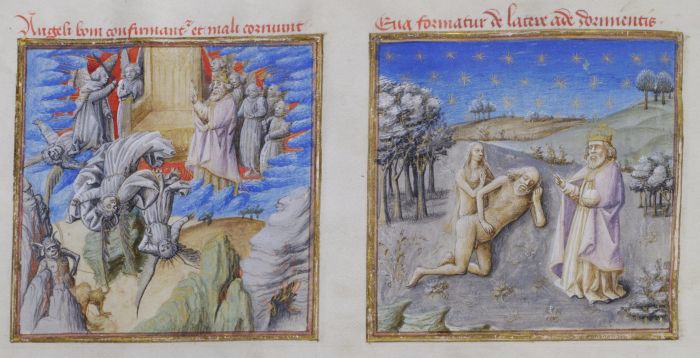 Angeli boni confirmant᷑ et mali corruunt
Eua formatur de latere ade dormientis